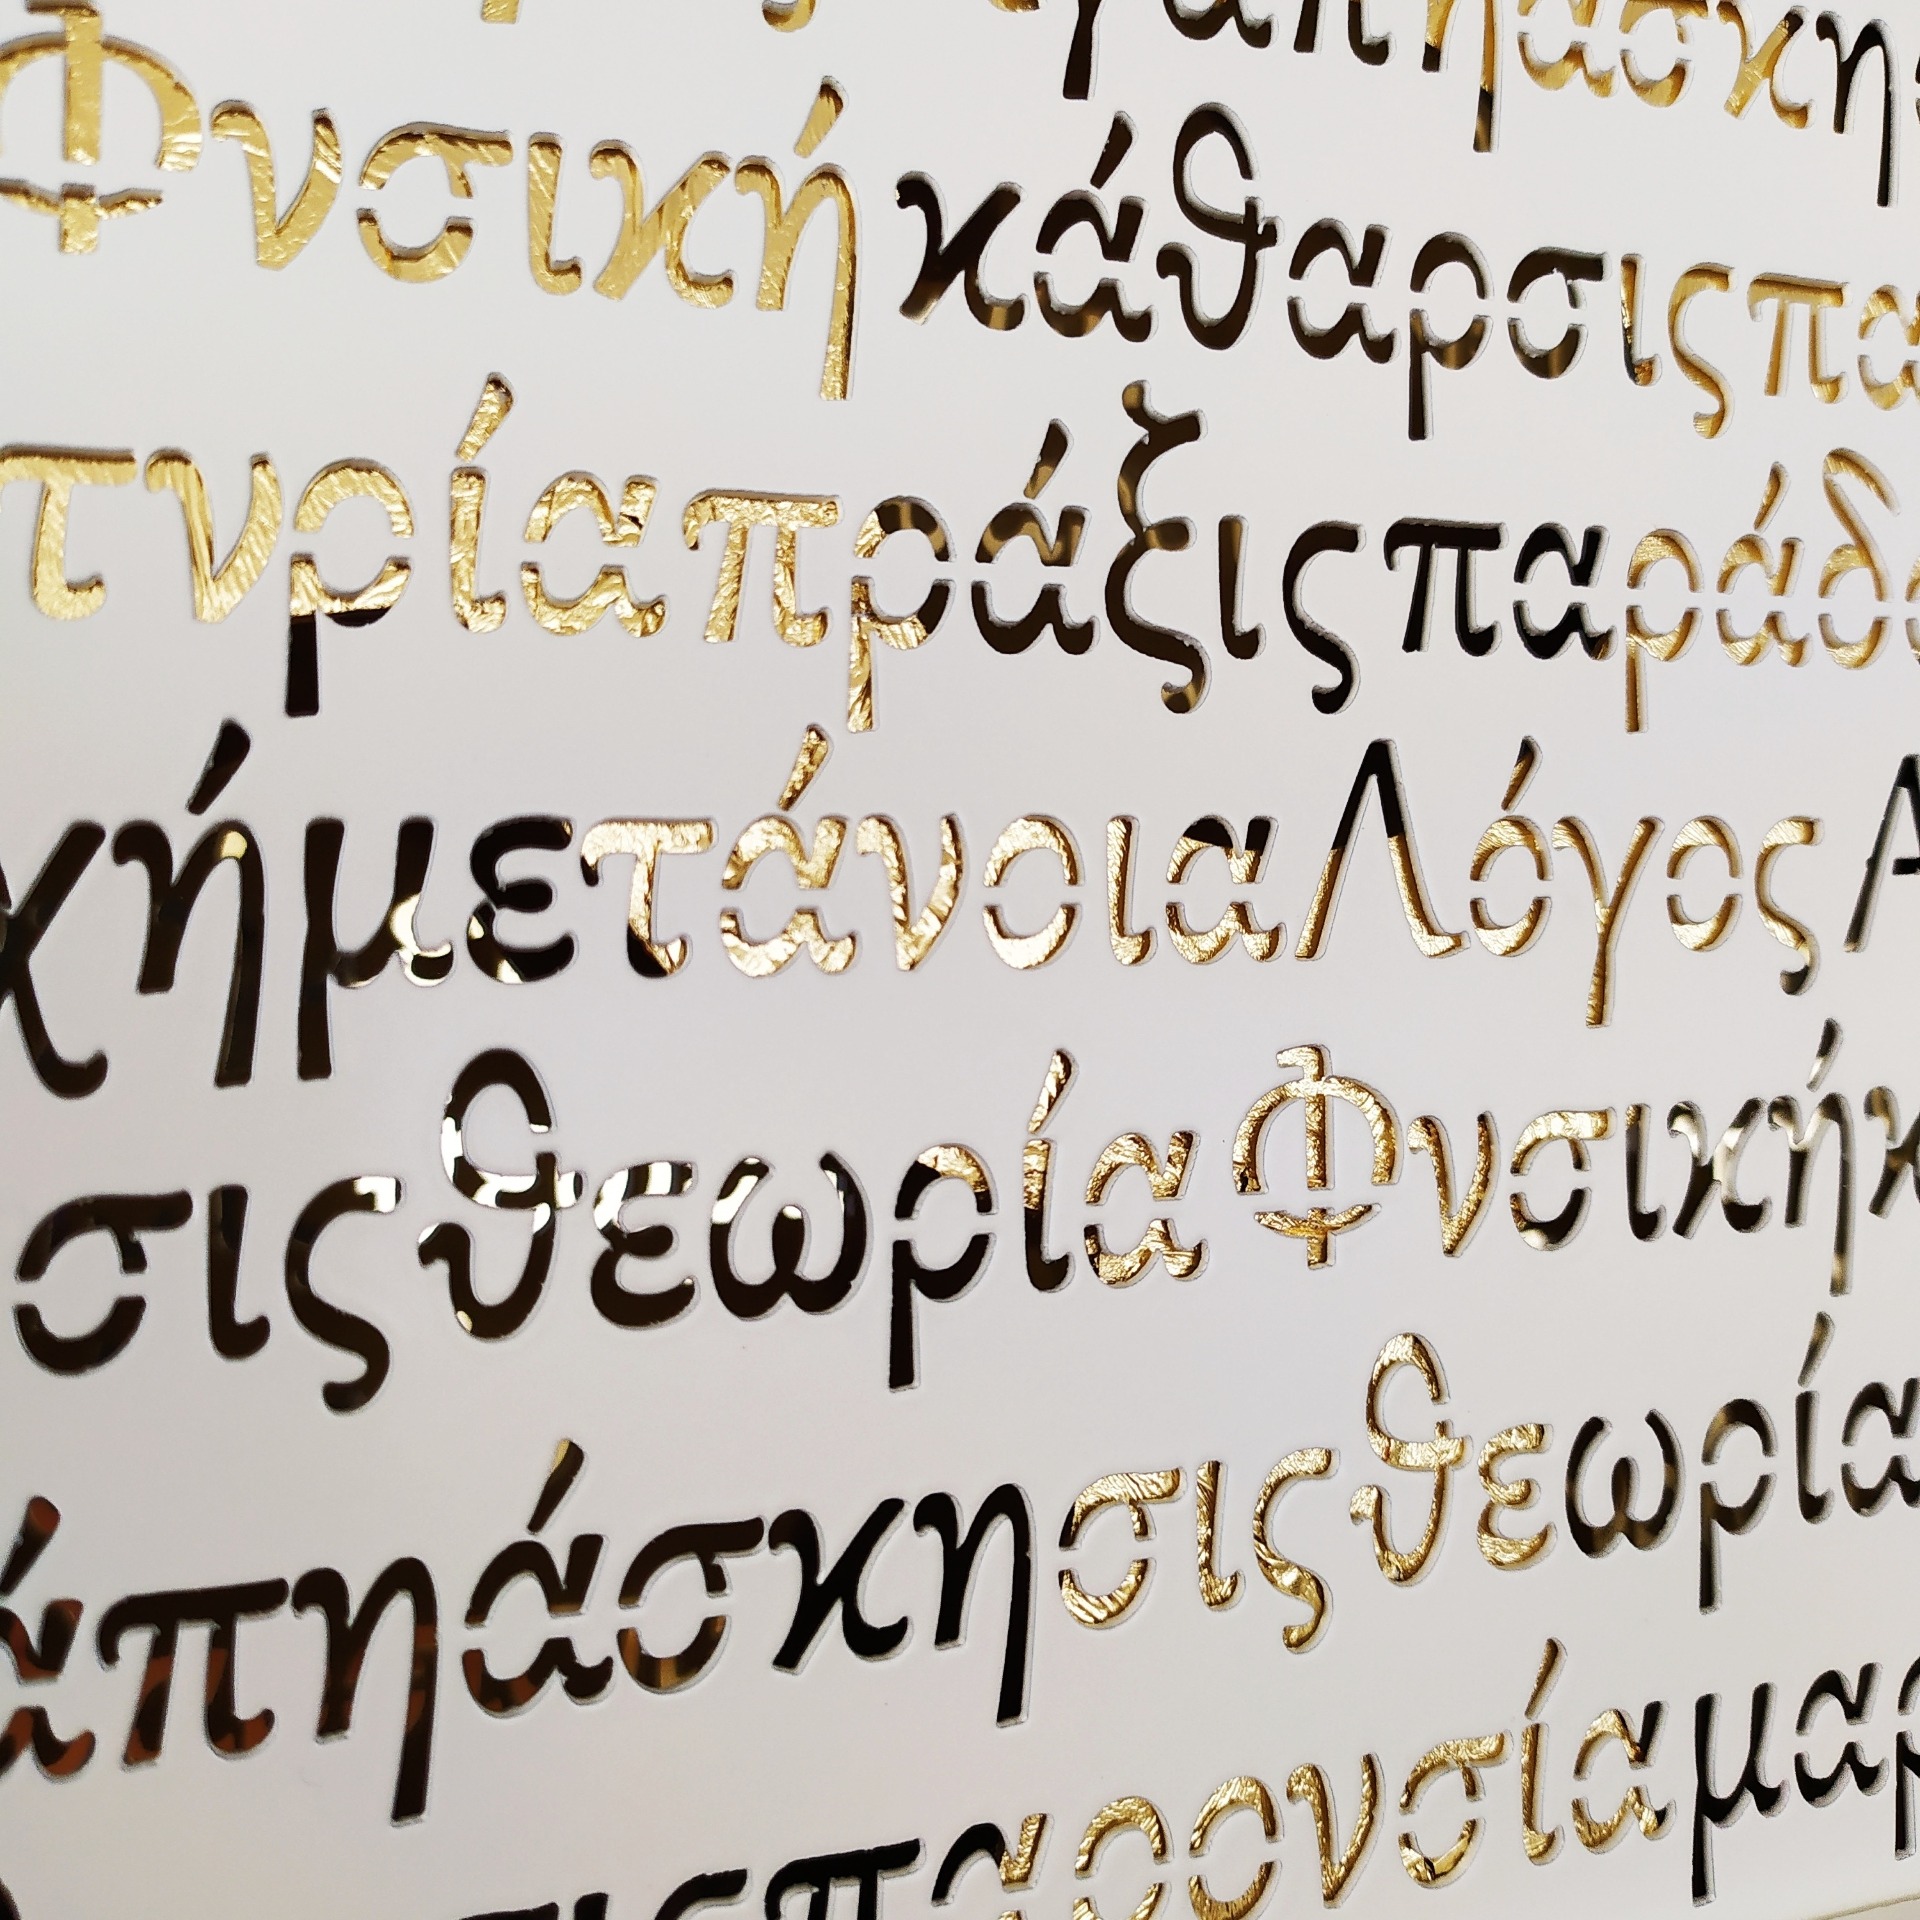 γάπηάσκησ
Φυσική κάθαρσιςπα
τυρίαπράξιςπαράδο
χήμετάνοιαΛόγος Α
σιςθεωρία Φυσικήκ
άπηάσκησιςθεωρία
σιςπαρουσίαμαρ